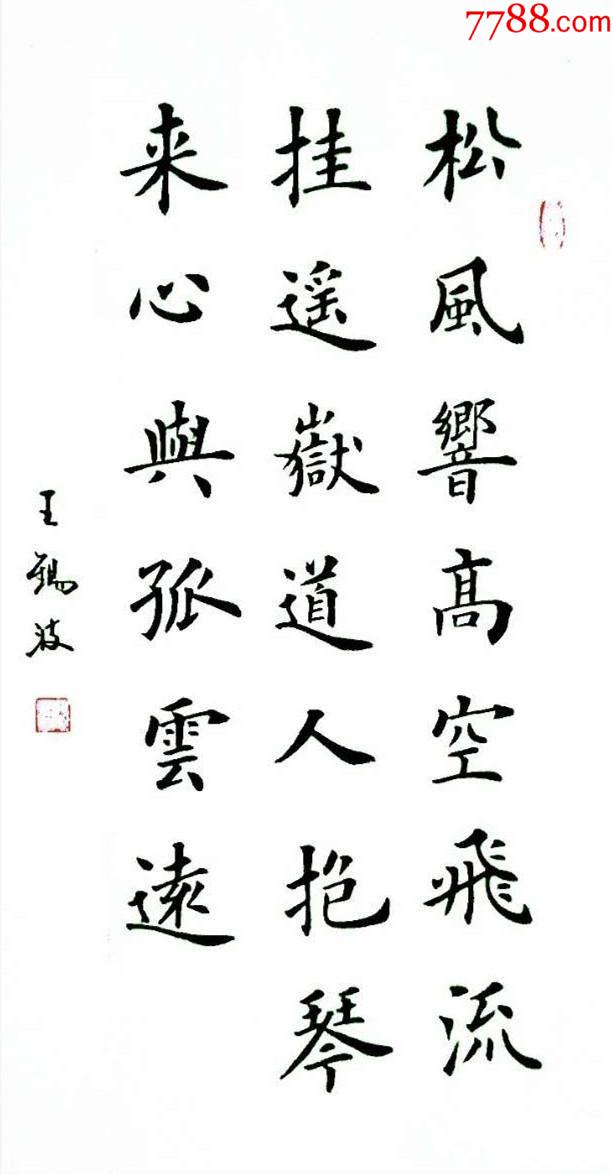 7788.com
松風響高空飛流
挂遥嶽道人抱琴
来心與孤雲遠
王錫波